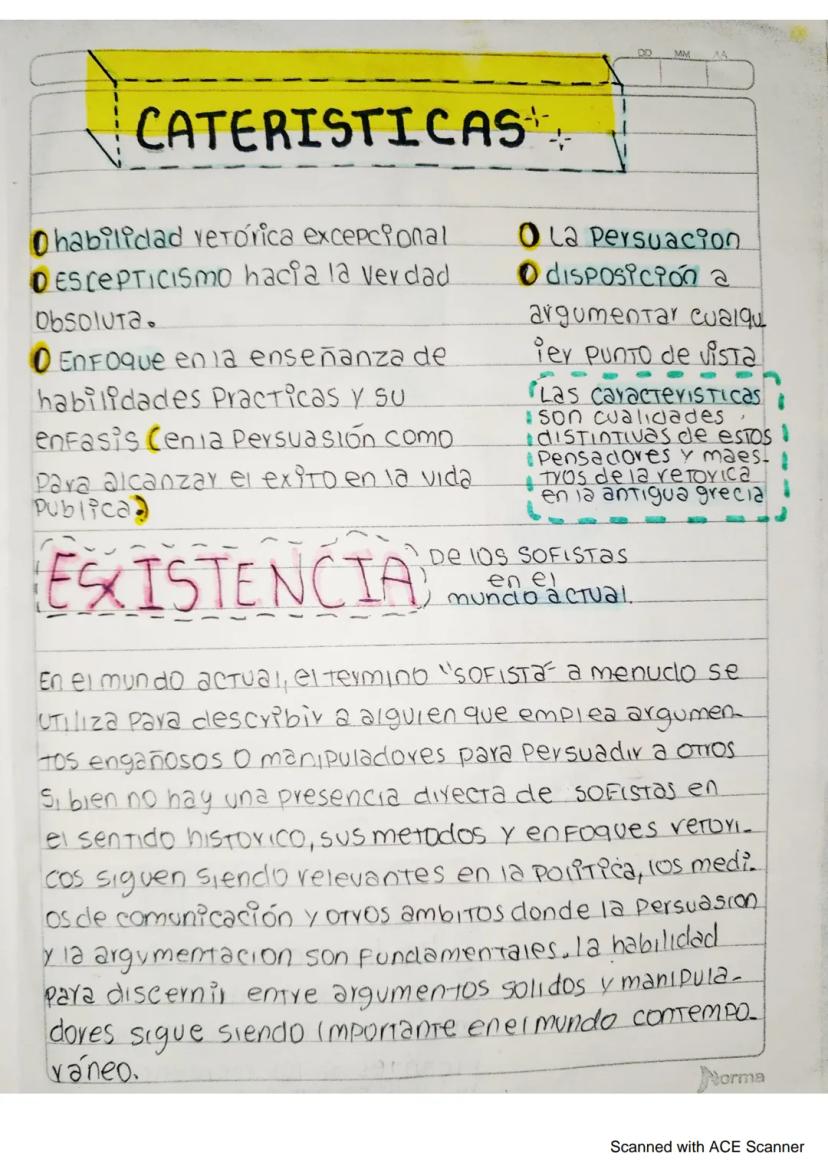 DD MM AA
CATERISTICAS
habilidad retórica excepcional
ESCEPTICISMO hacia la verdad
obsoluta.
ENFOQUE en la enseñanza de
habilidades Practicas y su
enfasis (en la Persuasión como
para alcanzar el exito en la vida
Publica)
La Persuacion
disposición a
argumentar cualqu
ier punto de vista
Las caracteristicas
son cualidades
distintivas de estos
Pensadores y maes-
tros de la retorica
en la antigua grecia
EXISTENCIA
De los SOFISTAS
en el
mundo actual.
En el mundo actual, el termino "SOFISTA" a menudo se
utiliza para describir a alguien que emplea argumen-
tos engañosos o manipuladores para persuadir a otros
Si bien no hay una presencia directa de sofistas en
el sentido historico, sus metodos y enfoques retori-
cos siguen siendo relevantes en la politica, los medi-
os de comunicación y otros ambitos donde la persuasion
y la argumentacion son fundamentales. la habilidad
para discernir entre argumentos solidos y manipula-
dores sigue siendo importante en el mundo contempo-
ráneo.
Norma
Scanned with ACE Scanner